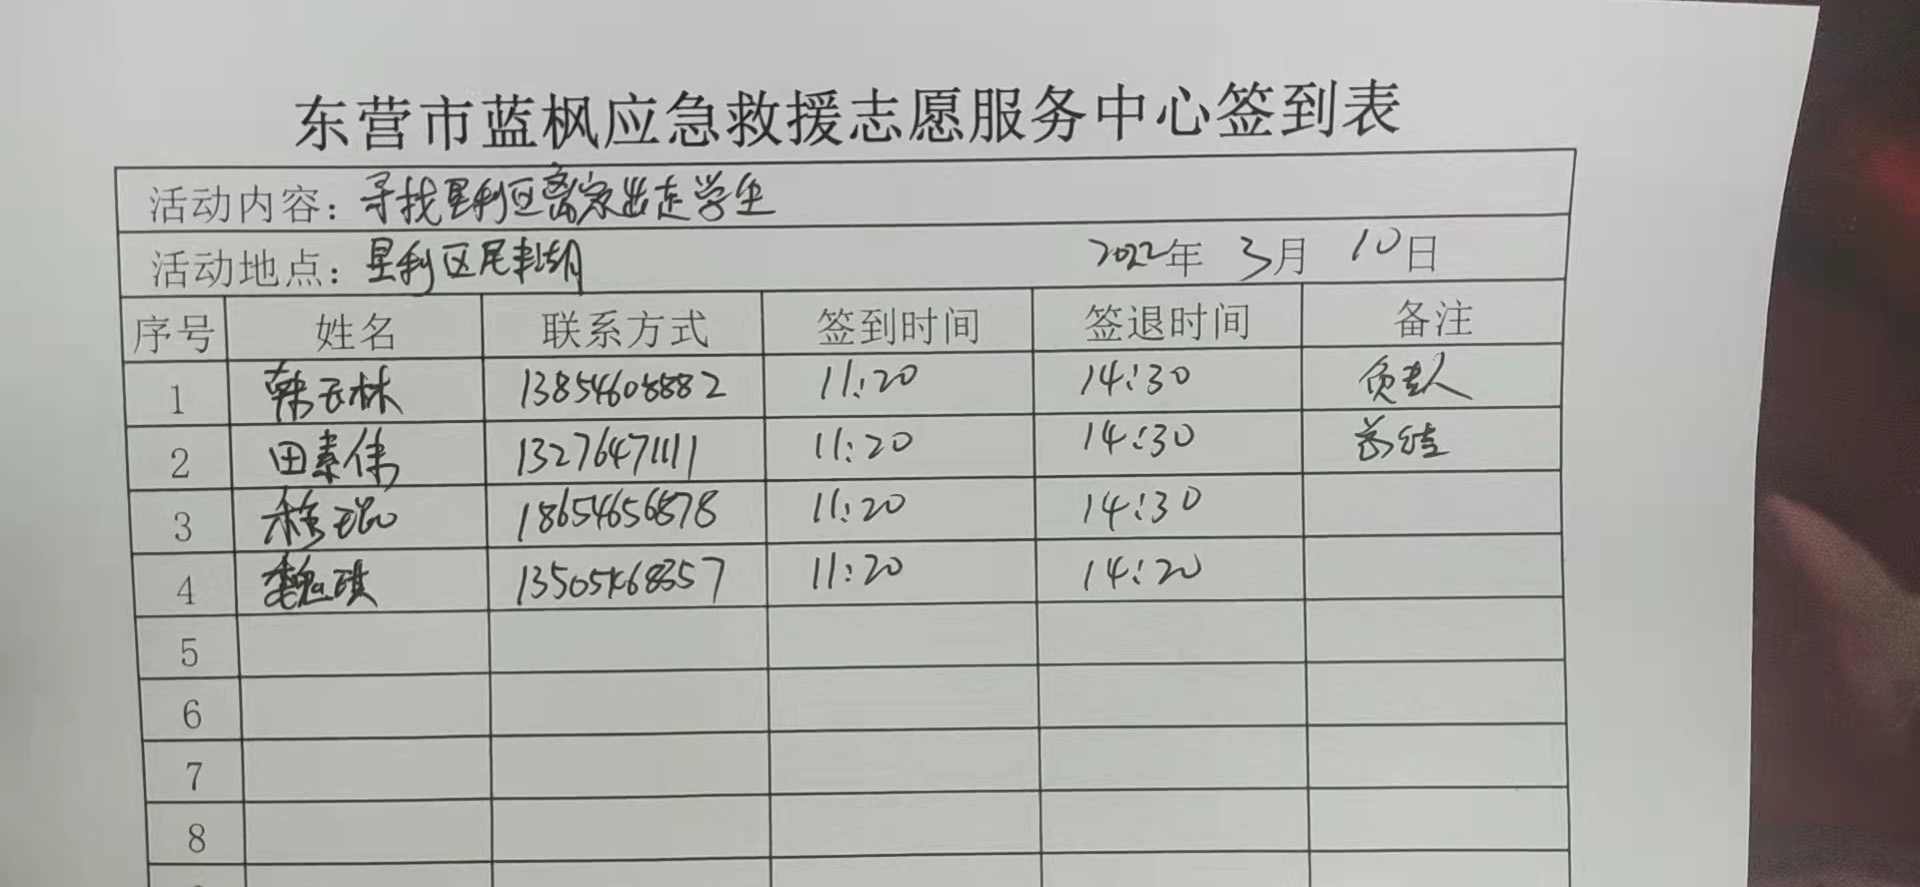 东营市蓝枫应急救援志愿服务中心签到表
活动内容：寻找垦利区离家出走学生
活动地点：垦利区 2022年 3月 10日
序号 姓名 联系方式 签到时间 签退时间 备注
1 韩云林 13854608882 11:20 14:30 负责人
2 田素伟 13276471111 11:20 14:30
3 18654656878 11:20 14:30
4 魏琪 13505468357 11:20 14:20
5
6
7
8